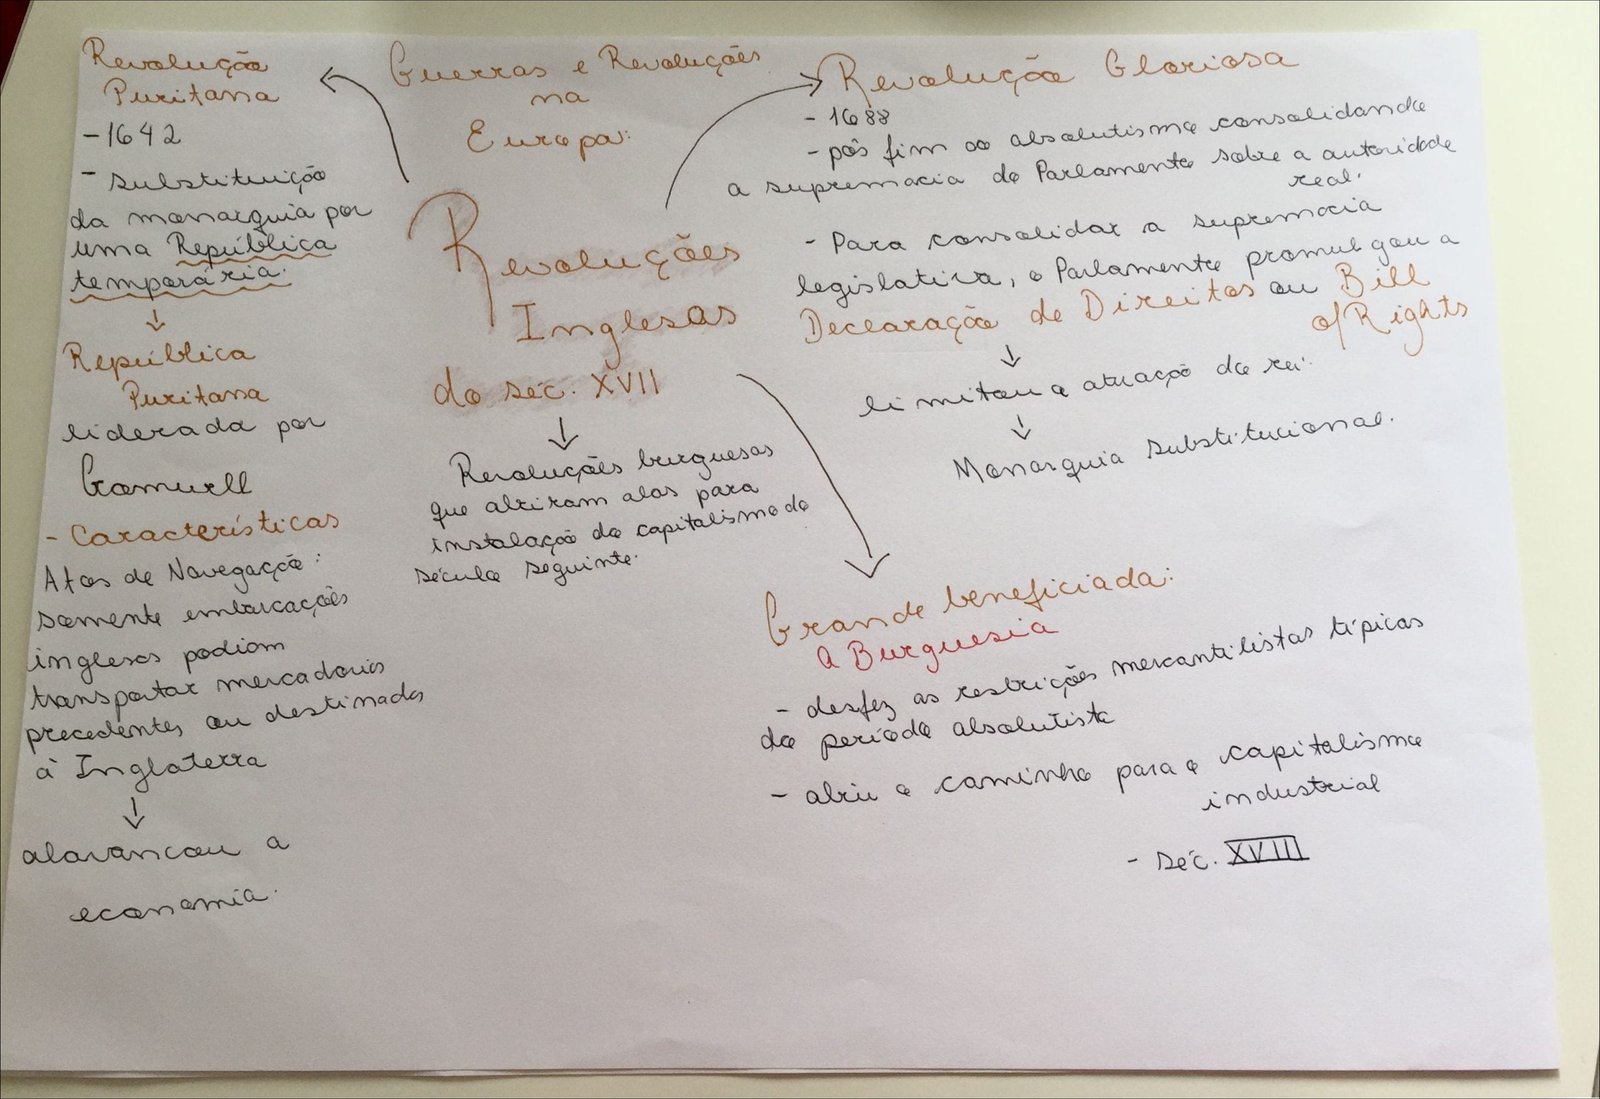 Guerras e Revoluções
na
Europa:
Revoluções
Inglesas
do séc. XVII
↓
Revoluções burguesas
que abriram alas para
instalação do capitalismo do
século seguinte.
Revolução
Puritana
- 1642
- substituição
da monarquia por
uma República
temporária.
↓
República
Puritana
liderada por
Cromwell
- Características
Atos de Navegação:
somente embarcações
inglesas podiam
transportar mercadorias
precedentes ou destinadas
à Inglaterra
↓
alavancou a
economia.
Revolução Gloriosa
- 1688
- pôs fim ao absolutismo consolidando
a supremacia do Parlamento sobre a autoridade
real.
- Para consolidar a supremacia
legislativa, o Parlamento promulgou a
Declaração de Direitos ou Bill
of Rights
↓
limitou a atuação do rei.
↓
Monarquia substitucional.
Grande beneficiada:
a Burguesia
- desfez as restrições mercantilistas típicas
do período absolutista
- abriu o caminho para o capitalismo
industrial
- séc. XVIII